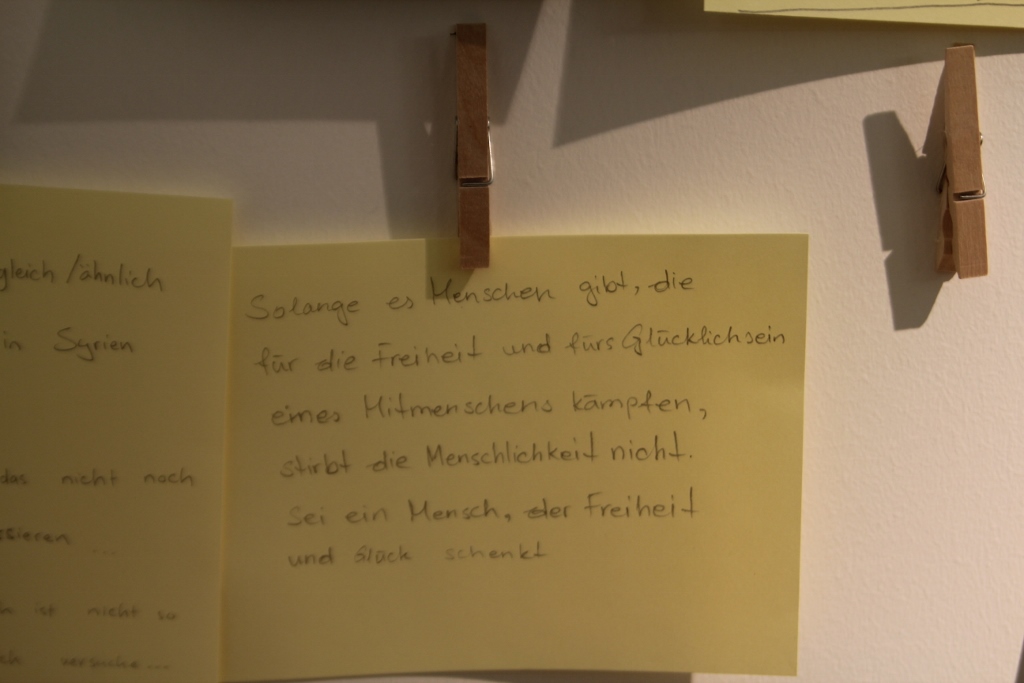 gleich / ähnlich
in Syrien
das nicht noch
ssieren ...
ist nicht so
versuche ...
Solange es Menschen gibt, die
für die Freiheit und fürs Glücklichsein
eines Mitmenschens kämpfen,
stirbt die Menschlichkeit nicht.
Sei ein Mensch, der Freiheit
und Glück schenkt